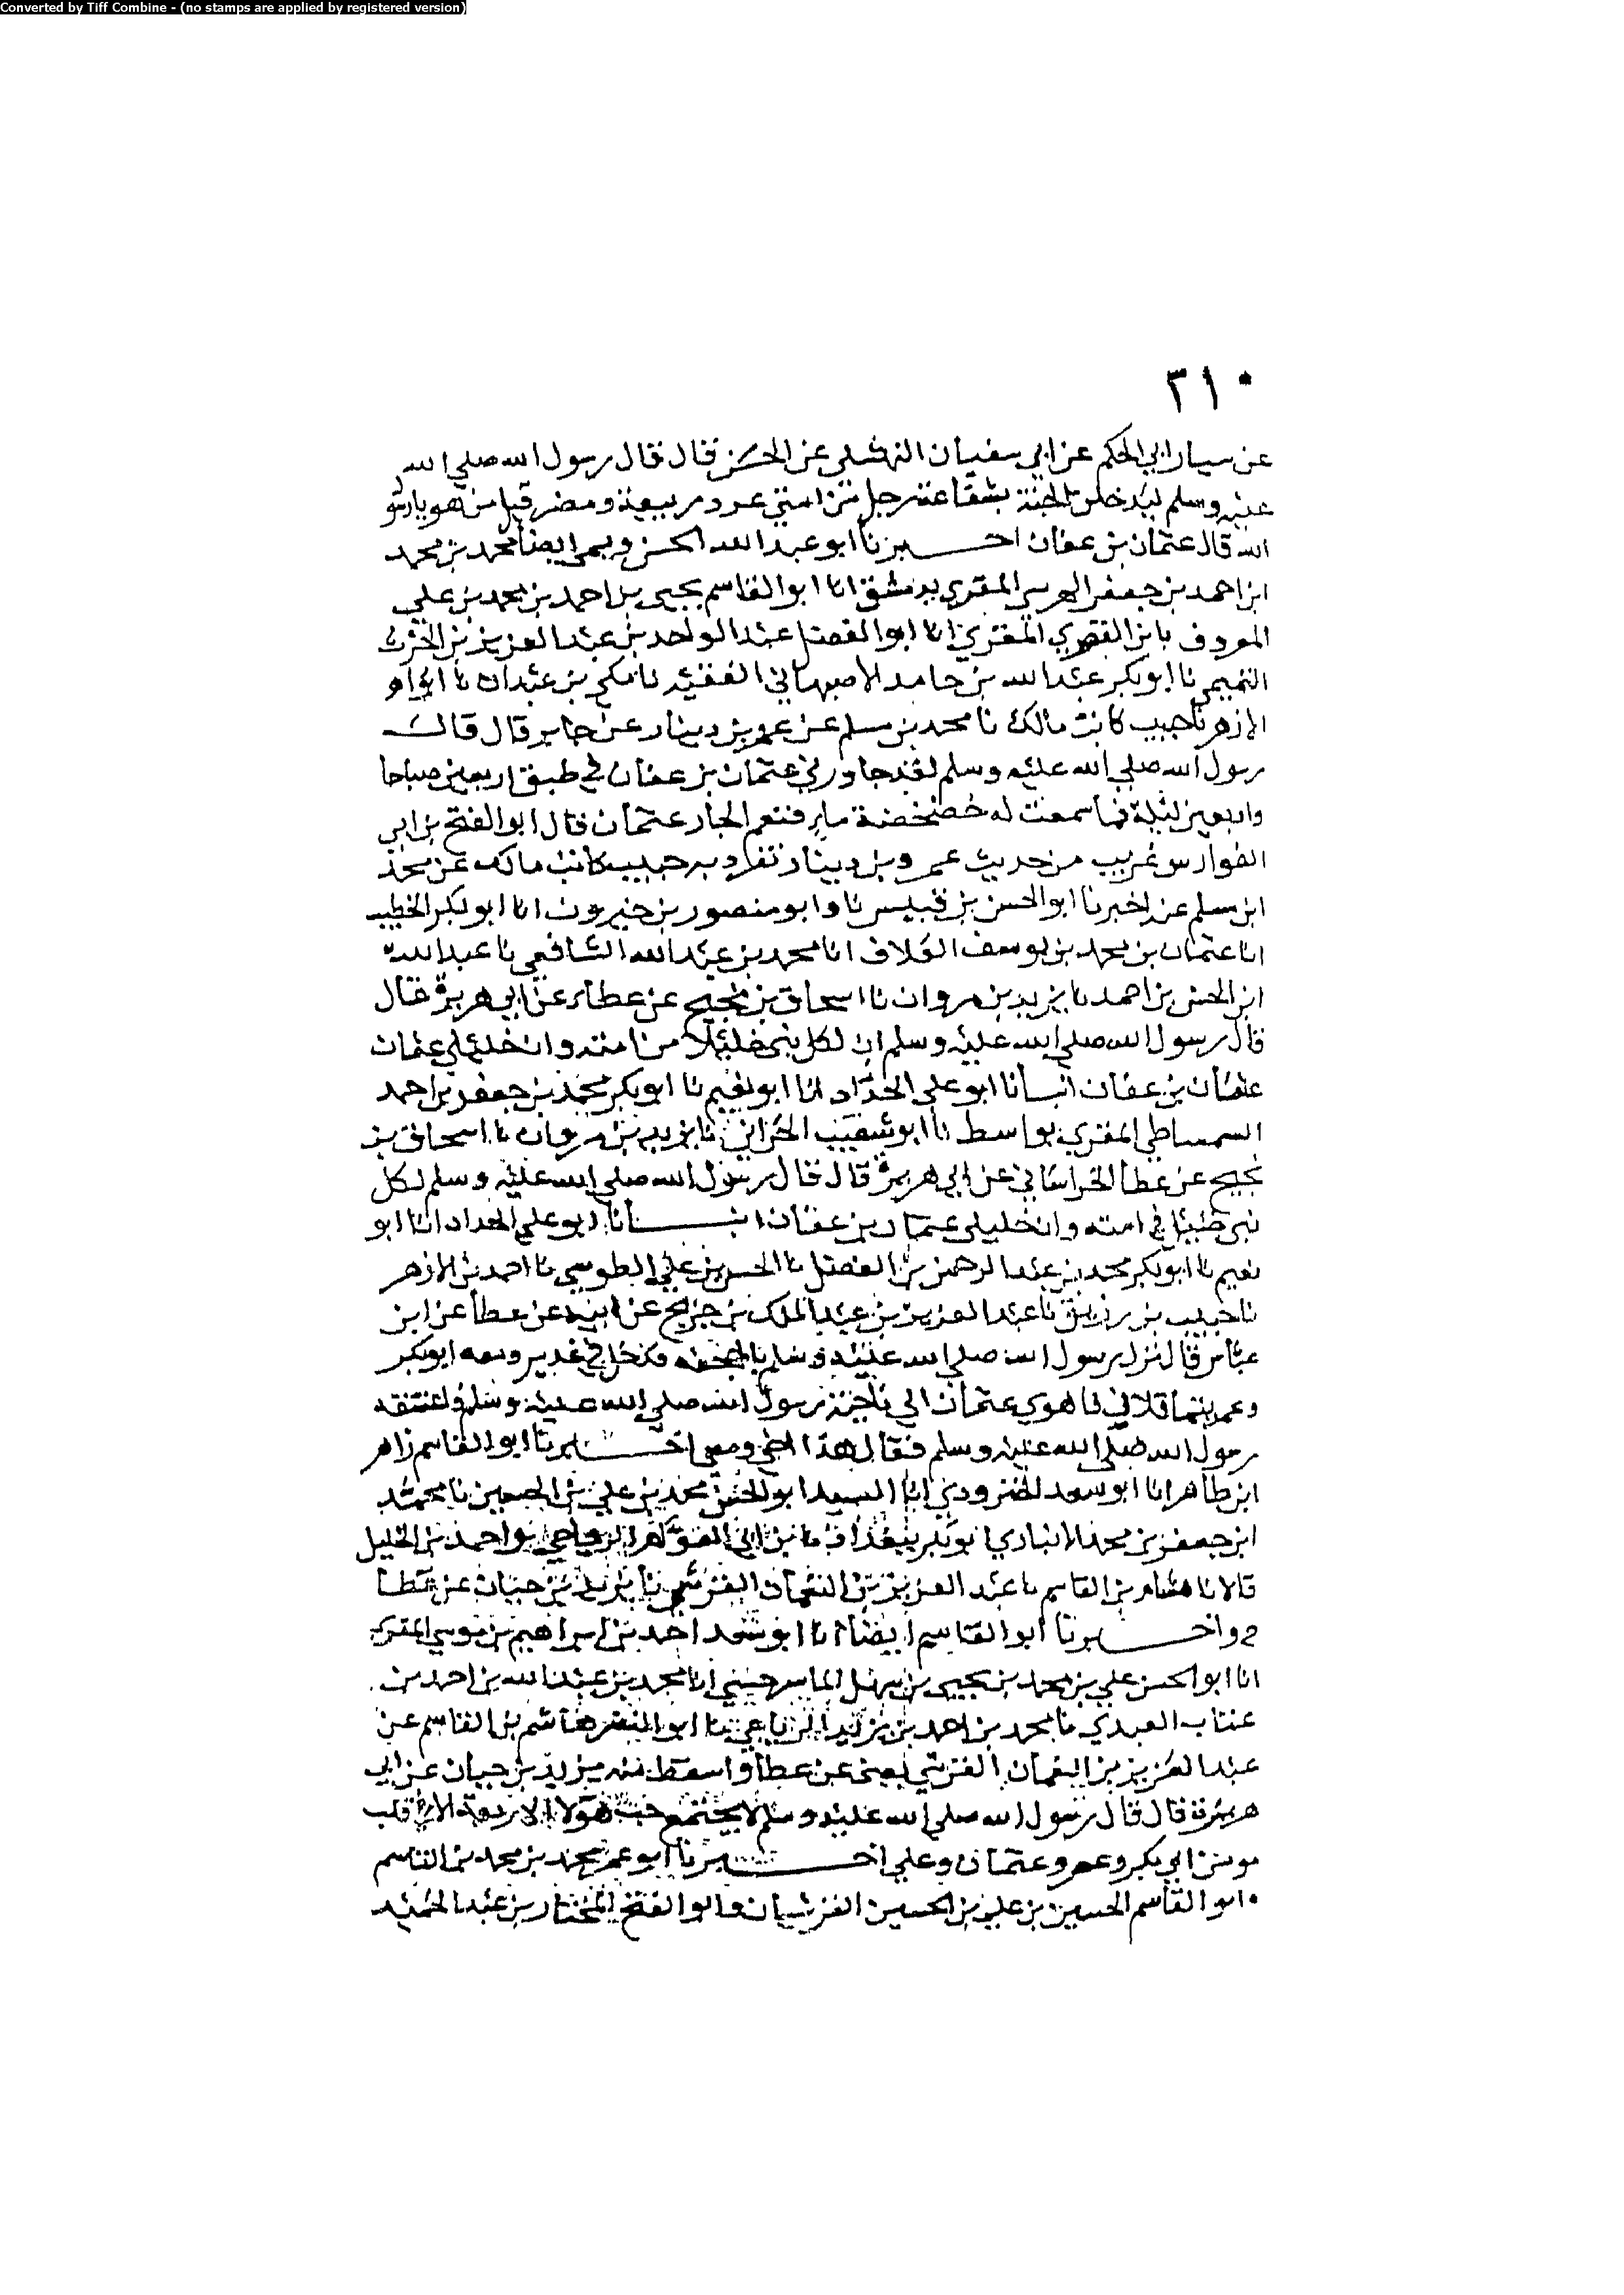 Converted by Tiff Combine - (no stamps are applied by registered version)
٣١٠
عن سيار ابي الحكم عن ابي سفيان النهشلي عن الحسن قال قال رسول الله صلي الله
عليه وسلم ليدخلن الجنة بشفاعة رجل من امتي عدد ربيعة ومضر قيل من هو يا رسو
الله قال عثمان بن عفان اخبرنا ابو عبد الله الحسن ويسمى ايضا محمد بن محمد
ابن احمد بن جعفر المقري بدمشق انا ابو القاسم يحيى بن احمد بن محمد بن علي
المعروف بابن القصري المقري انا ابو الفضل عبد الواحد بن عبد العزيز بن الحرث
التميمي نا ابو بكر عبد الله بن حامد الاصبهاني الفقيه نا مكي بن عبدان نا
الازهر نا حبيب كاتب مالك نا محمد بن مسلم عن عمرو بن دينار عن جابر قال قال
رسول الله صلي الله عليه وسلم لقد جاورني عثمان بن عفان في طبق اربعين صباحا
واربعين ليلة فما سمعت له خضخضة ماء فنعم الجار عثمان قال ابو الفتح بن ابي
الفوارس غريب من حديث عمرو بن دينار تفرد به حبيب كاتب مالك عن محمد
ابن مسلم عنه اخبرنا ابو الحسن بن قبيس نا وابو منصور بن خيرون انا ابو بكر الخطيب
انا عثمان بن محمد بن يوسف العلاف انا محمد بن عبد الله الشافعي نا عبد الله
ابن الحسن بن احمد نا يزيد بن مروان نا اسحاق بن نجيح عن عطاء عن ابي هريرة قال
قال رسول الله صلي الله عليه وسلم ان لكل نبي خليلا من امته وان خليلي عثمان
عثمان بن عفان انبانا ابو علي الحداد انا ابو نعيم نا ابو بكر محمد بن جعفر بن احمد
السمساطي المقري بواسط نا ابو شعيب الحراني نا يزيد بن مروان نا اسحاق بن
نجيح عن عطا الخراساني عن ابي هريرة قال قال رسول الله صلي الله عليه وسلم لكل
نبي في امته وان خليلي عثمان بن عفان انبانا ابو علي الحداد انا ابو
نعيم نا ابو بكر محمد بن عبد الرحمن بن الفضل نا الحسن بن علي الطوسي نا احمد بن الازهر
نا حبيب بن رزيق نا عبد العزيز بن عبد الملك بن جريج عن ابيه عن عطا عن ابن
عباس قال نزل رسول الله صلي الله عليه وسلم بالجحفه فدخل في غدير ومعه ابو بكر
وعمر هوي عثمان الي ناحية رسول الله صلي الله عليه وسلم فاعتنقه
رسول الله صلي الله عليه وسلم فقال هذا اخي ومعي اخبرنا ابو القاسم زاهر
ابن طاهر انا ابو سعد الجنزرودي انا السيد ابو الحسن محمد بن علي بن الحسين نا محمد
ابن جعفر بن محمد الانباري ابو بكر ببغداد نا ابن ابي العوام الرياحي واحمد بن الخليل
قالا نا هشام بن القاسم نا عبد العزيز بن النعمان القرشي نا يزيد بن حيان عن عطا
ح واخبرنا ابو القاسم ايضا انا ابو سعد احمد بن ابراهيم بن موسي المقري
انا ابو الحسن علي بن محمد بن يحيى بن سهل الماسرجسي انا محمد بن عبد الله بن احمد بن
عتاب العبدي نا محمد بن احمد بن يزيد الرياحي نا ابو النضر هاشم بن القاسم عن
عبد العزيز بن النعمان القرشي يعني عن عطا واسقط منه يزيد بن حيان عن ابي
هريرة قال قال رسول الله صلي الله عليه وسلم لا يجتمع حب هولا الاربعة الا في قلب
مومن ابي بكر وعمر وعثمان وعلي اخبرنا ابو عمر محمد بن محمد بن القاسم
ابو القاسم الحسين بن علي بن الحسين القرشيان وابو الفتح المختار بن عبد الحميد